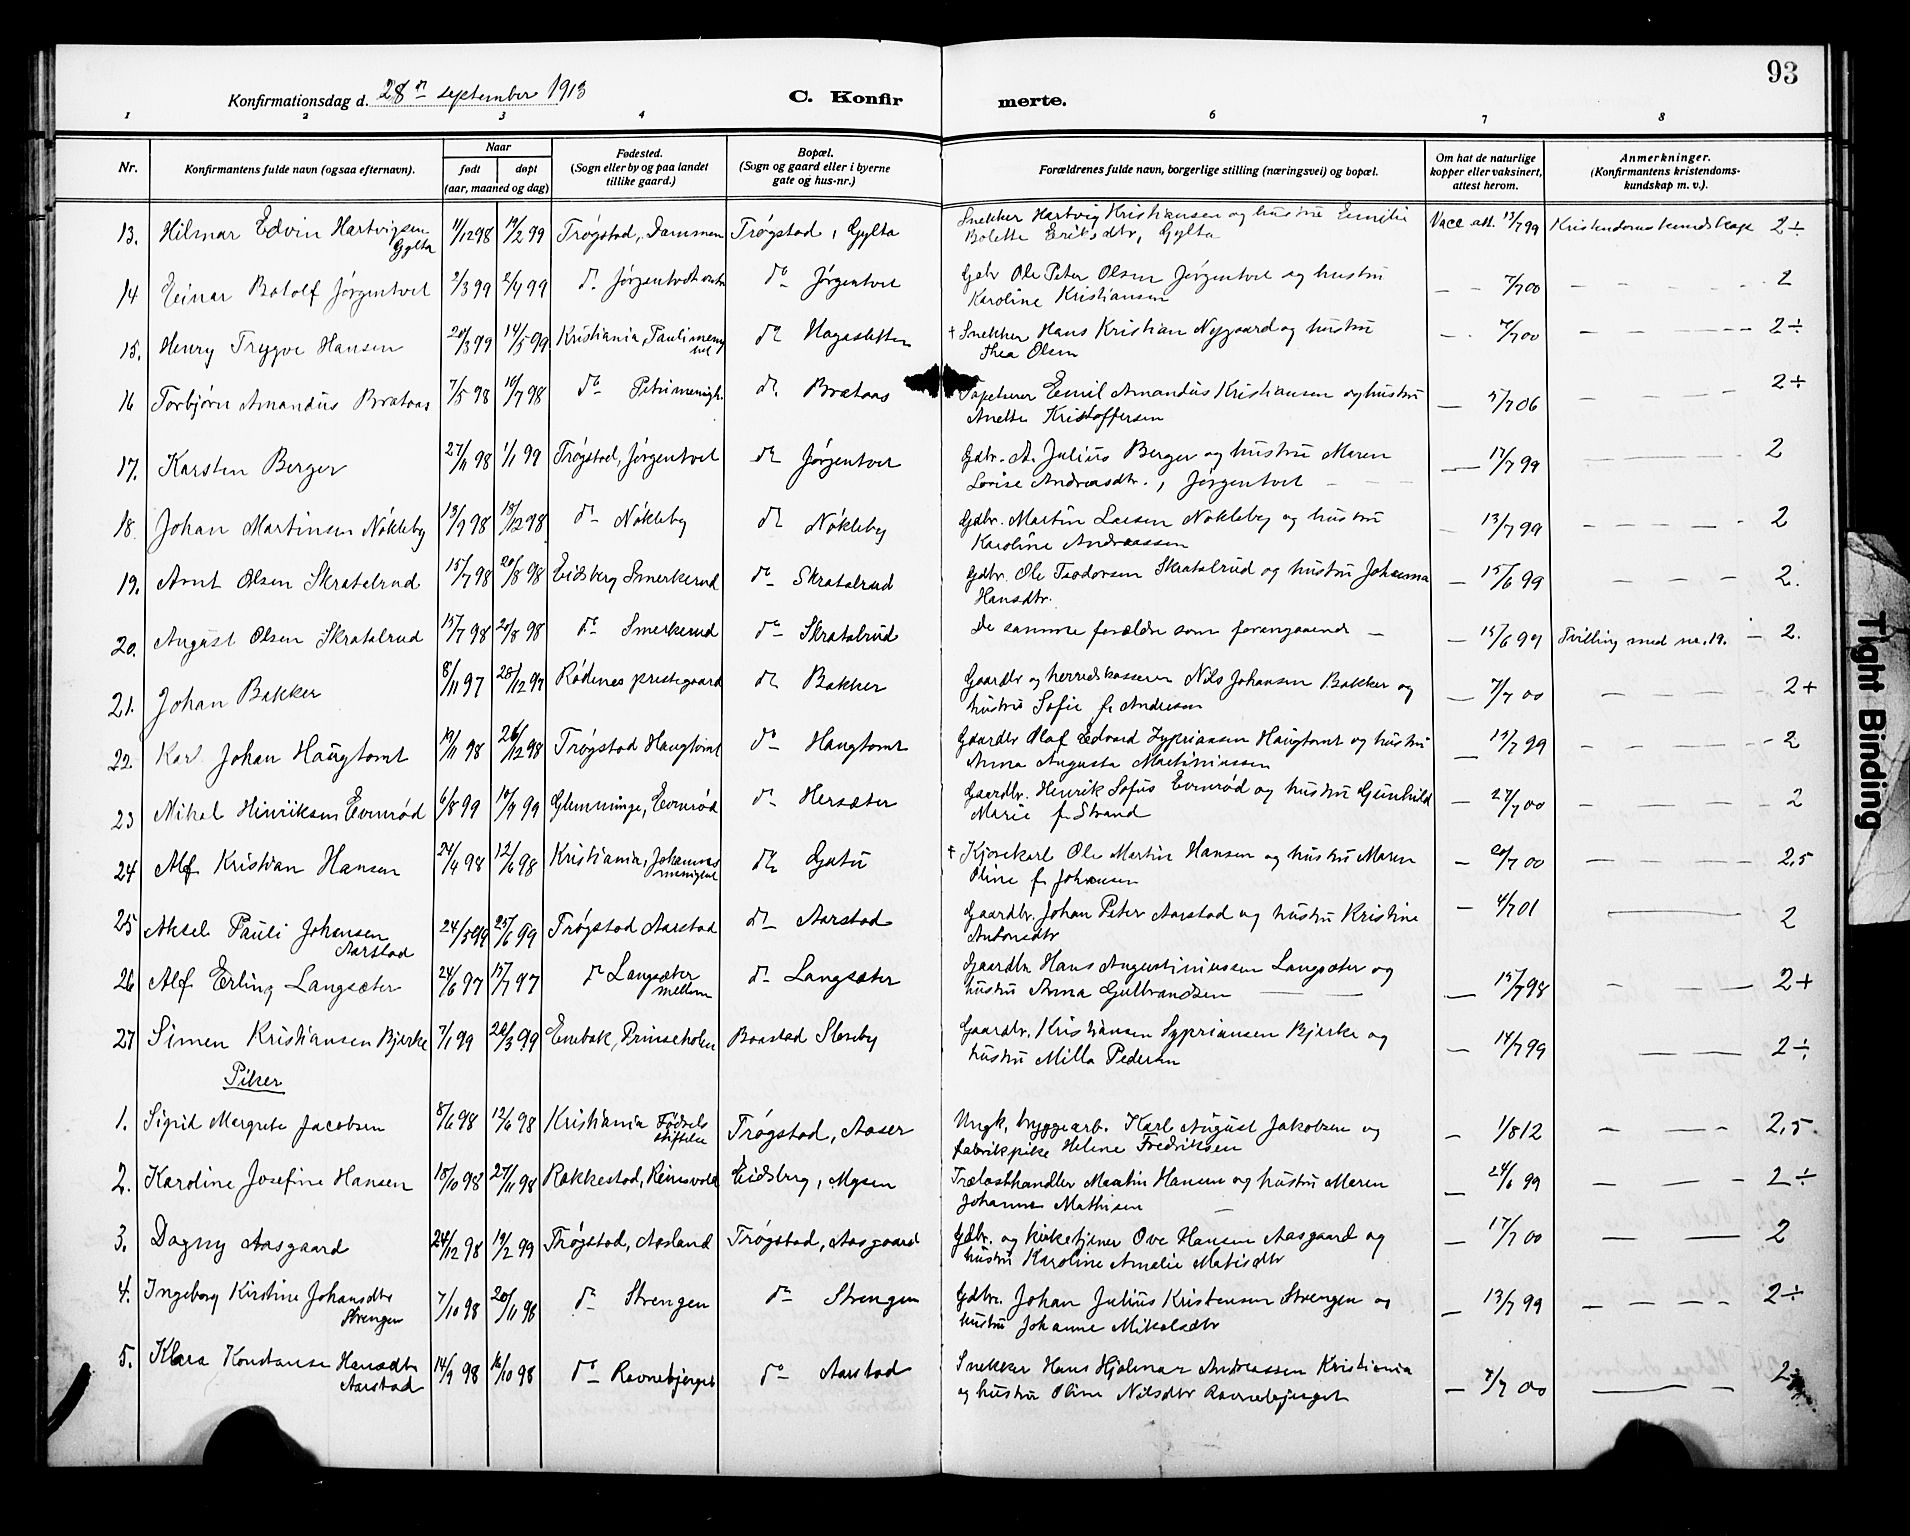 93
Konfirmationsdag d. 28 dn september 1913 C. Konfirmerte.
1 2 3 4 6 7 8
Nr. Konfirmantens fulde navn (ogsaa efternavn). Naar født døpt (aar, maaned og dag) Fødested. (Sogn eller by og paa landet tillike gaard.) Bopæl. (Sogn og gaard eller i byerne gate og hus-nr.) Forældrenes fulde navn, borgerlige stilling (næringsvei) og bopæl. Om hat de naturlige kopper eller vaksinert, attest herom. Anmerkninger. (Konfirmantens kristendomskundskap m. v.).
13. Hilmar Edvin Hartvigsen Gylta 4/12 98 19/2 99 Trøgstad, Dammen Trøgstad, Gylta Snekker Hartvig Kristiansen og hustru Emilie Vacc. att. 13/7 99 Kristendomskundskap 2÷
Bolette Eriksdtr, Gylta
14 Einar Botolf Jørgentvet 2/3 99 2/4 99 do Jørgentvedt do Jørgentvet Gbr Ole Peter Olsen Jørgentvet og hustru — - 7/7 00 - — — — 2
Karoline Kristiansen
15. Henry Trygve Hansen 20/3 99 14/5 99 Kristiania, Paulimenighet do Hagasletten † Snekker Hans Kristian Nygaard og hustru — - 7/7 00 — — — 2÷
Thea Olsen
16 Torbjørn Amandus Brataas 7/5 98 10/7 98 do Petrimenigh. do Brataas Tapetserer Emil Amandus Kristiansen og hustru — 5/7 06 - — — 2÷
Anette Kristoffersen
17. Karsten Berger 27/11 98 1/1 99 Trøgstad, Jørgentvet do Jørgentvet Gdbr. A. Julius Berger og hustru Maren — 17/7 99 — — — 2
Lovise Andreasdtr., Jørgentvet - — -
18. Johan Martinsen Nökleby 13/9 98 18/12 98 do Nökleby do Nökleby Gdbr. Martin Larsen Nökleby og hustru — 13/7 99 - — — - 2
Karoline Andreassen
19. Arnt Olsen Skratalrud 15/7 98 20/8 98 Eidsberg Smerkerud do Skratalrud Gdbr. Ole Teodorsen Skratalrud og hustru Johanna — 15/6 99 - — — 2.
Hansdtr.
20. August Olsen Skratalrud 15/7 98 20/8 98 do Smerkerud do Skratalrud De samme forældre som forangaaende — — 15/6 99 Tvilling med nr. 19. — 2.
21. Johan Bakker 8/11 97 26/12 97 Rødenes prestegaard do Bakker Gaardbr og herredskasserer Nils Johansen Bakker og — 7/7 00 — — — 2+
hustru Sofie f. Andresen
22. Karl Johan Haugtomt 19/11 98 26/12 98 Trøgstad Haugtomt do Haugtomt Gaardbr Olaf Edvard Zypriansen Haugtomt og hustru — 13/7 99 - — — - 2
Anna Augusta Martiniussen
23 Mikal Hinriksen Evenrød 6/8 99 10/9 99 Glemminge, Evenrød do Hersæter Gaardbr. Henrik Sofus Evenrød og hustru Gunhild — 27/7 00 — — — 2
Marie f. Strand
24 Alf Kristian Hansen 24/4 98 12/6 98 Kristiania, Johannes menighet do Gatu † Kjørekarl Ole Martin Hansen og hustru Maren — 20/7 00 — — — 2,5
Oline f. Johansen
25 Aksel Pauli Johansen Aarstad 24/5 99 25/6 99 Trøgstad Aarstad do Aarstad Gaardbr. Johan Peter Aarstad og hustru Kristine — 4/7 01 — 2
Antonsdtr
26 Alf Erling Langsæter 24/6 97 15/7 97 do Langsæter mellem do Langsæter Gaardbr. Hans Augustiniussen Langsæter og — 15/7 98 - — — 2+
hustru Anna Gulbrandsen — —
27 Simen Kristiansen Bjerke 7/1 99 26/3 99 Enebak, Prinseholen Baastad Sloreby Gaardbr. Kristiansen Sypriansen Bjerke og — 14/7 99 — — — 2÷
hustru Milla Pedersen
Piker
1. Sigrid Margrete Jacobsen 8/6 98 12/6 98 Kristiania Fødselsstiftelse Trøgstad, Aaser Ungk. bryggearb. Karl August Jakobsen og — 1/8 12 — — — 2,5.
fabrikpike Helene Fredriksen
2. Karoline Josefine Hansen 18/10 98 27/11 98 Rakkestad, Reinsvold Eidsberg, Mysen Trælasthandler Martin Hansen og hustru Maren — 24/6 99 — — — 2÷
Johanne Mathisen —
3. Dagny Aasgaard 24/12 98 19/2 99 Trøgstad, Aasland Trøgstad, Aasgaard Gdbr. og kirketjener Ove Hansen Aasgaard og — 17/7 00 — — 2
hustru Karoline Amalie Matisdtr
4. Ingeborg Kirstine Johansdtr Strengen 7/10 98 20/11 98 do Strengen do Strengen Gdbr. Johan Julius Kristensen Strengen og — 13/7 99 — — — 2÷
hustru Johanne Mikalsdtr
5. Klara Konstanse Hansdtr Aarstad 14/9 98 16/10 98 do Ravnebjerget do Aarstad Snekker Hans Hjalmar Andreassen Kristiania — 7/7 00 — 2÷
og hustru Oline Nilsdtr Ravnebjerget
Tight Binding